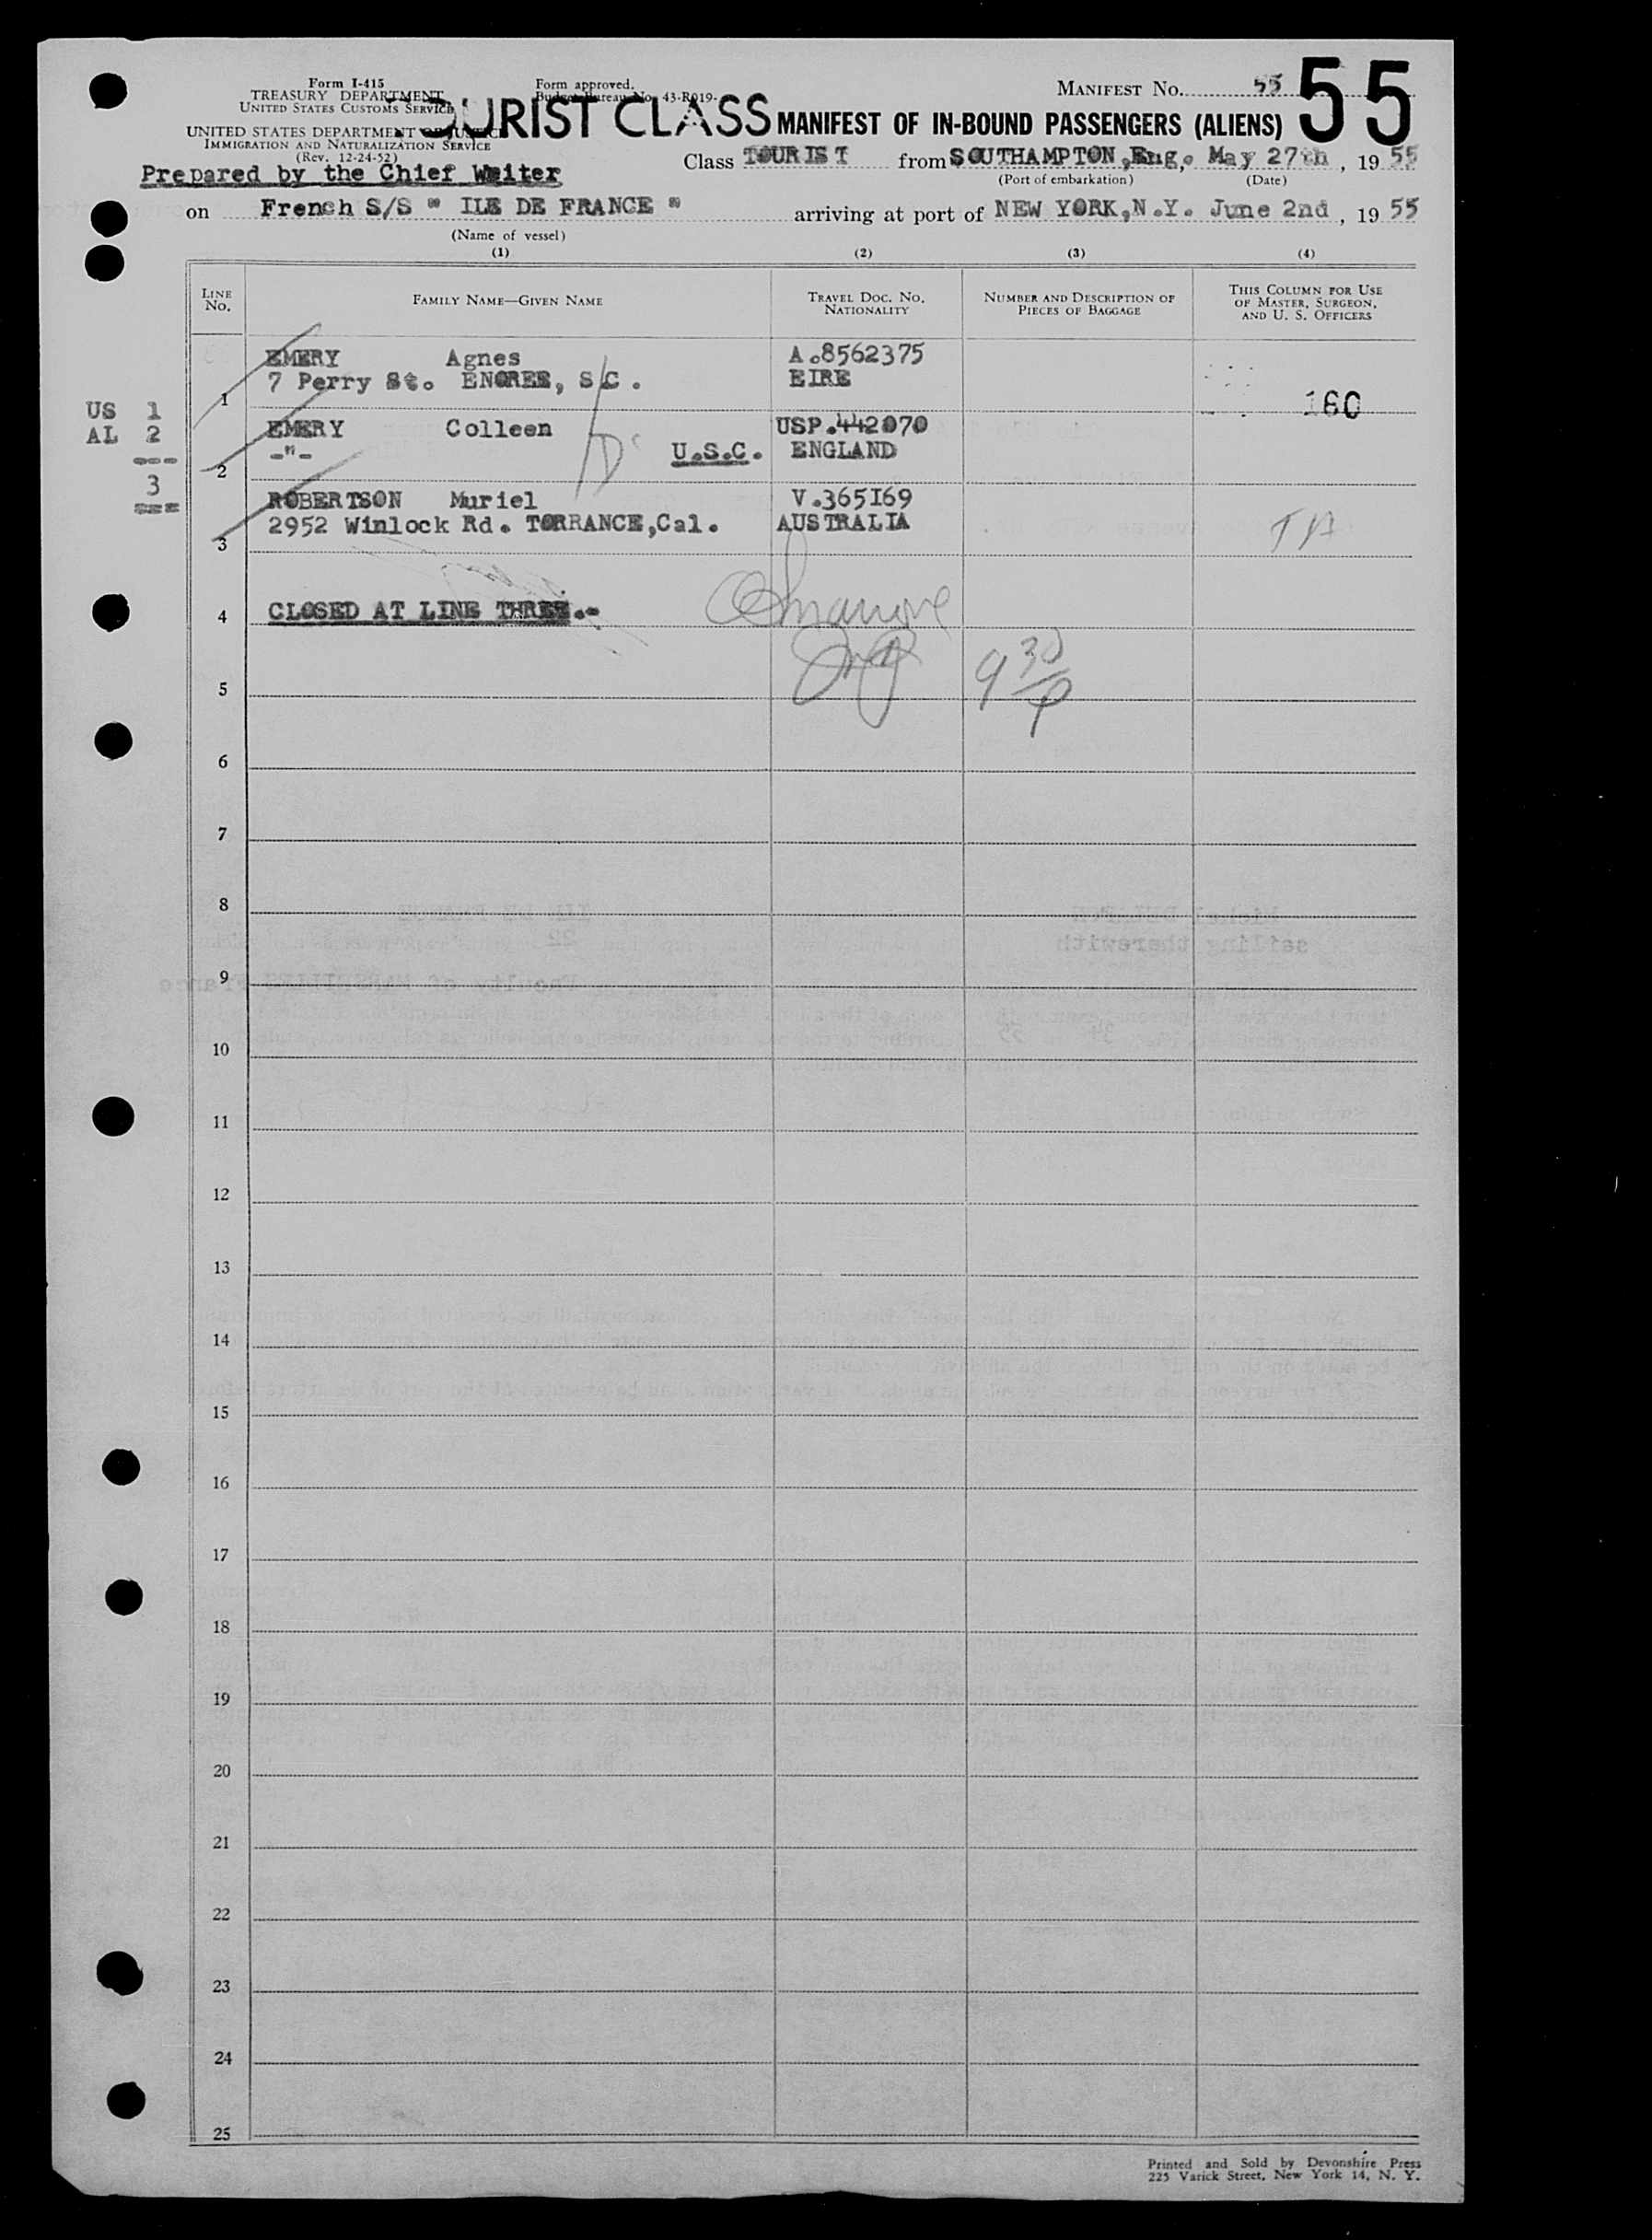 Form I-415
TREASURY DEPARTMENT
UNITED STATES CUSTOMS SERVICE
UNITED STATES DEPARTMENT OF JUSTICE
IMMIGRATION AND NATURALIZATION SERVICE
(Rev. 12-24-52)
Form approved.
Budget Bureau No. 43-R019-
TOURIST CLASS
MANIFEST NO. 55
55
MANIFEST OF IN-BOUND PASSENGERS (ALIENS)
Prepared by the Chief Waiter
Class TOURIST from SOUTHAMPTON,Eng, May 27th, 19 55
(Port of embarkation) (Date)
on French S/S " ILE DE FRANCE " arriving at port of NEW YORK,N.Y. June 2nd, 19 55
(Name of vessel)
(1) (2) (3) (4)
LINE NO.
FAMILY NAME—GIVEN NAME
TRAVEL DOC. NO. NATIONALITY
NUMBER AND DESCRIPTION OF PIECES OF BAGGAGE
THIS COLUMN FOR USE OF MASTER, SURGEON, AND U. S. OFFICERS
EMERY Agnes A.8562375
7 Perry St. ENOREE, S.C. EIRE
1 160
US 1
AL 2
---
3
===
EMERY Colleen USP.442070
-"- U.S.C. ENGLAND
2
ROBERTSON Muriel V.365I69
2952 Winlock Rd. TORRANCE,Cal. AUSTRALIA
3
4 CLOSED AT LINE THREE.-
5 9 30/P
6
7
8
9
10
11
12
13
14
15
16
17
18
19
20
21
22
23
24
25
Printed and Sold by Devonshire Press
225 Varick Street, New York 14, N. Y.